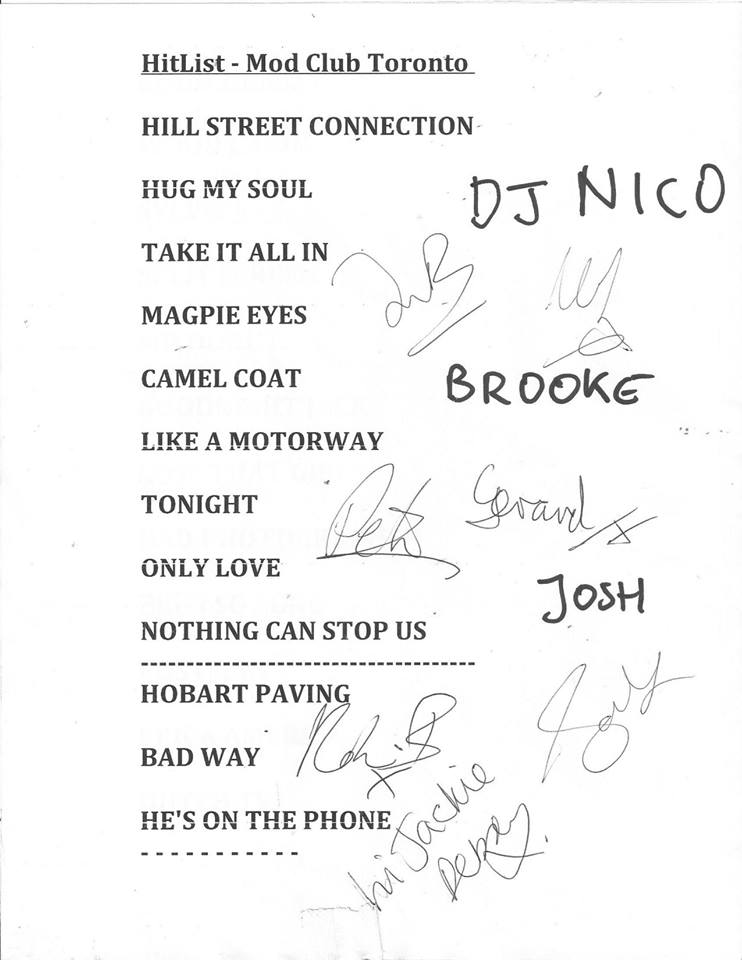 HitList - Mod Club Toronto
HILL STREET CONNECTION
HUG MY SOUL
DJ NICO
TAKE IT ALL IN
MAGPIE EYES
CAMEL COAT
BROOKE
LIKE A MOTORWAY
TONIGHT
Pete
Gerard x
ONLY LOVE
JOSH
NOTHING CAN STOP US
-------------------------------------
HOBART PAVING
BAD WAY
HE'S ON THE PHONE
- - - - - - - - - - -
hi Jackie
Debsey